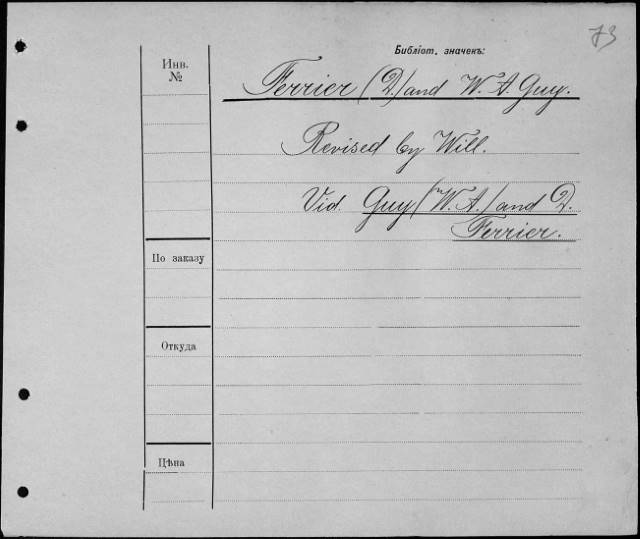 73
Библіот. значекъ:
Инв.
№
Ferrier (D.) and W. A. Guy.
Revised by Will.
Vid. Guy (W. A.) and D.
Ferrier.
По заказу
Откуда
Цѣна